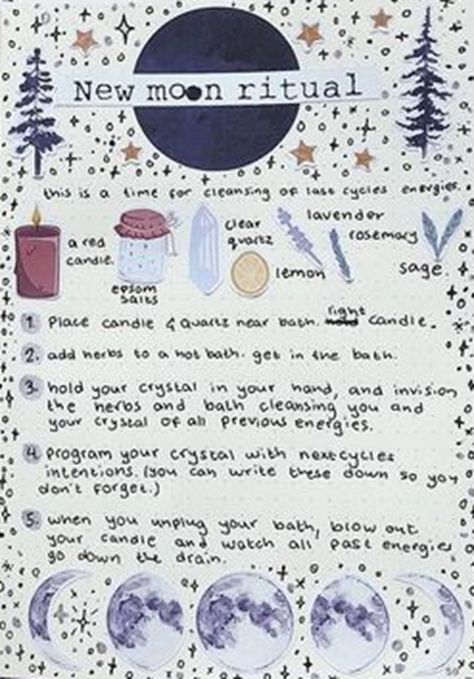 New moon ritual
this is a time for cleansing of last cycles energies.
a red
candle.
epsom
salts
clear
quartz
lemon
lavender
rosemary
sage.
1. Place candle & quartz near bath. right candle.
2. add herbs to a hot bath. get in the bath.
3. hold your crystal in your hand, and invision
the herbs and bath cleansing you and
your crystal of all previous energies.
4. program your crystal with next cycles
intentions. (you can write these down so you
don't forget.)
5. when you unplug your bath, blow out
your candle and watch all past energies
go down the drain.